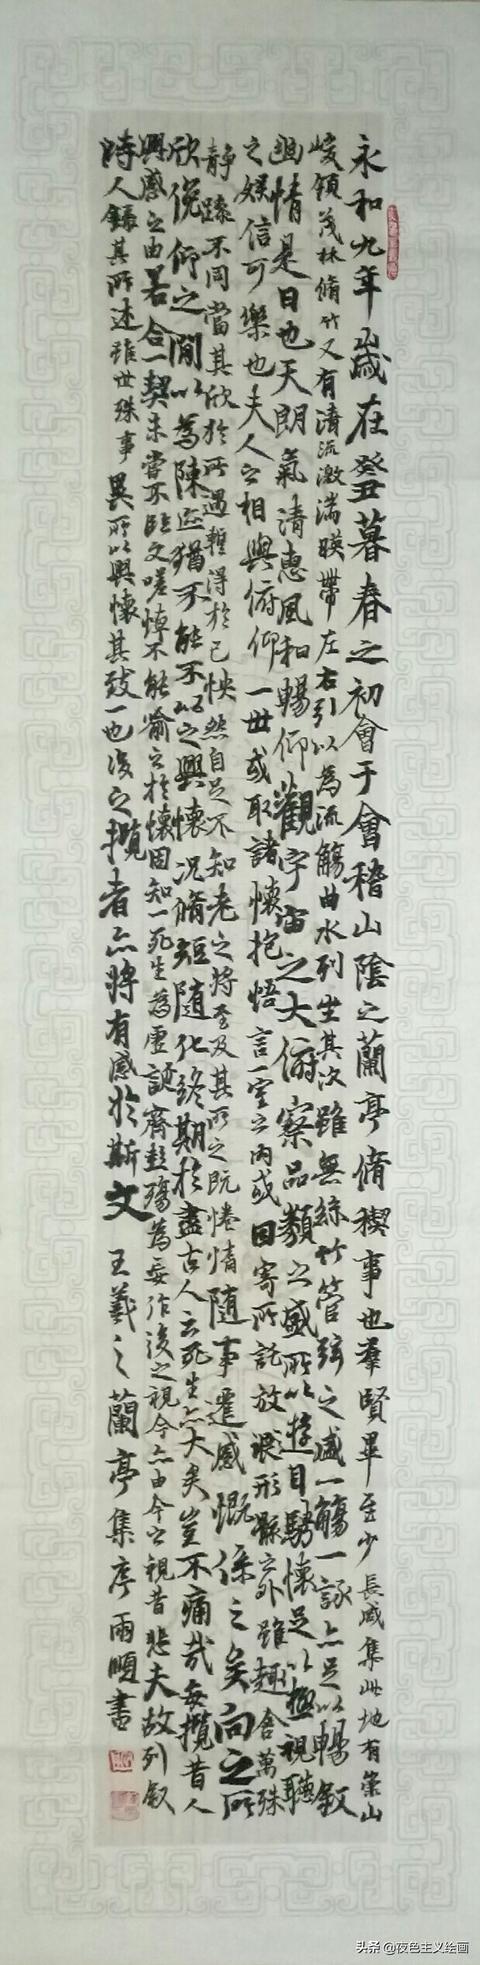 永和九年歲在癸丑暮春之初會于會稽山陰之蘭亭脩禊事也羣賢畢至少長咸集此地有崇山
峻領茂林脩竹又有清流激湍暎帶左右引以為流觴曲水列坐其次雖無絲竹管弦之盛一觴一詠亦足以暢敘
幽情是日也天朗氣清惠風和暢仰觀宇宙之大俯察品類之盛所以遊目騁懷足以極視聽
之娛信可樂也夫人之相與俯仰一世或取諸懷抱悟言一室之內或因寄所託放浪形骸之外雖趣舍萬殊
靜躁不同當其欣於所遇暫得於己怏然自足不知老之將至及其所之既惓情隨事遷感慨係之矣向之所
欣俛仰之閒以為陳迹猶不能不以之興懷況脩短隨化終期於盡古人云死生亦大矣豈不痛哉每攬昔人
興感之由若合一契未嘗不臨文嗟悼不能喻之於懷固知一死生為虛誕齊彭殤為妄作後之視今亦由今之視昔悲夫故列敘
時人錄其所述雖世殊事異所以興懷其致一也後之攬者亦將有感於斯文 王羲之蘭亭集序雨順書
头条 @夜色主义绘画